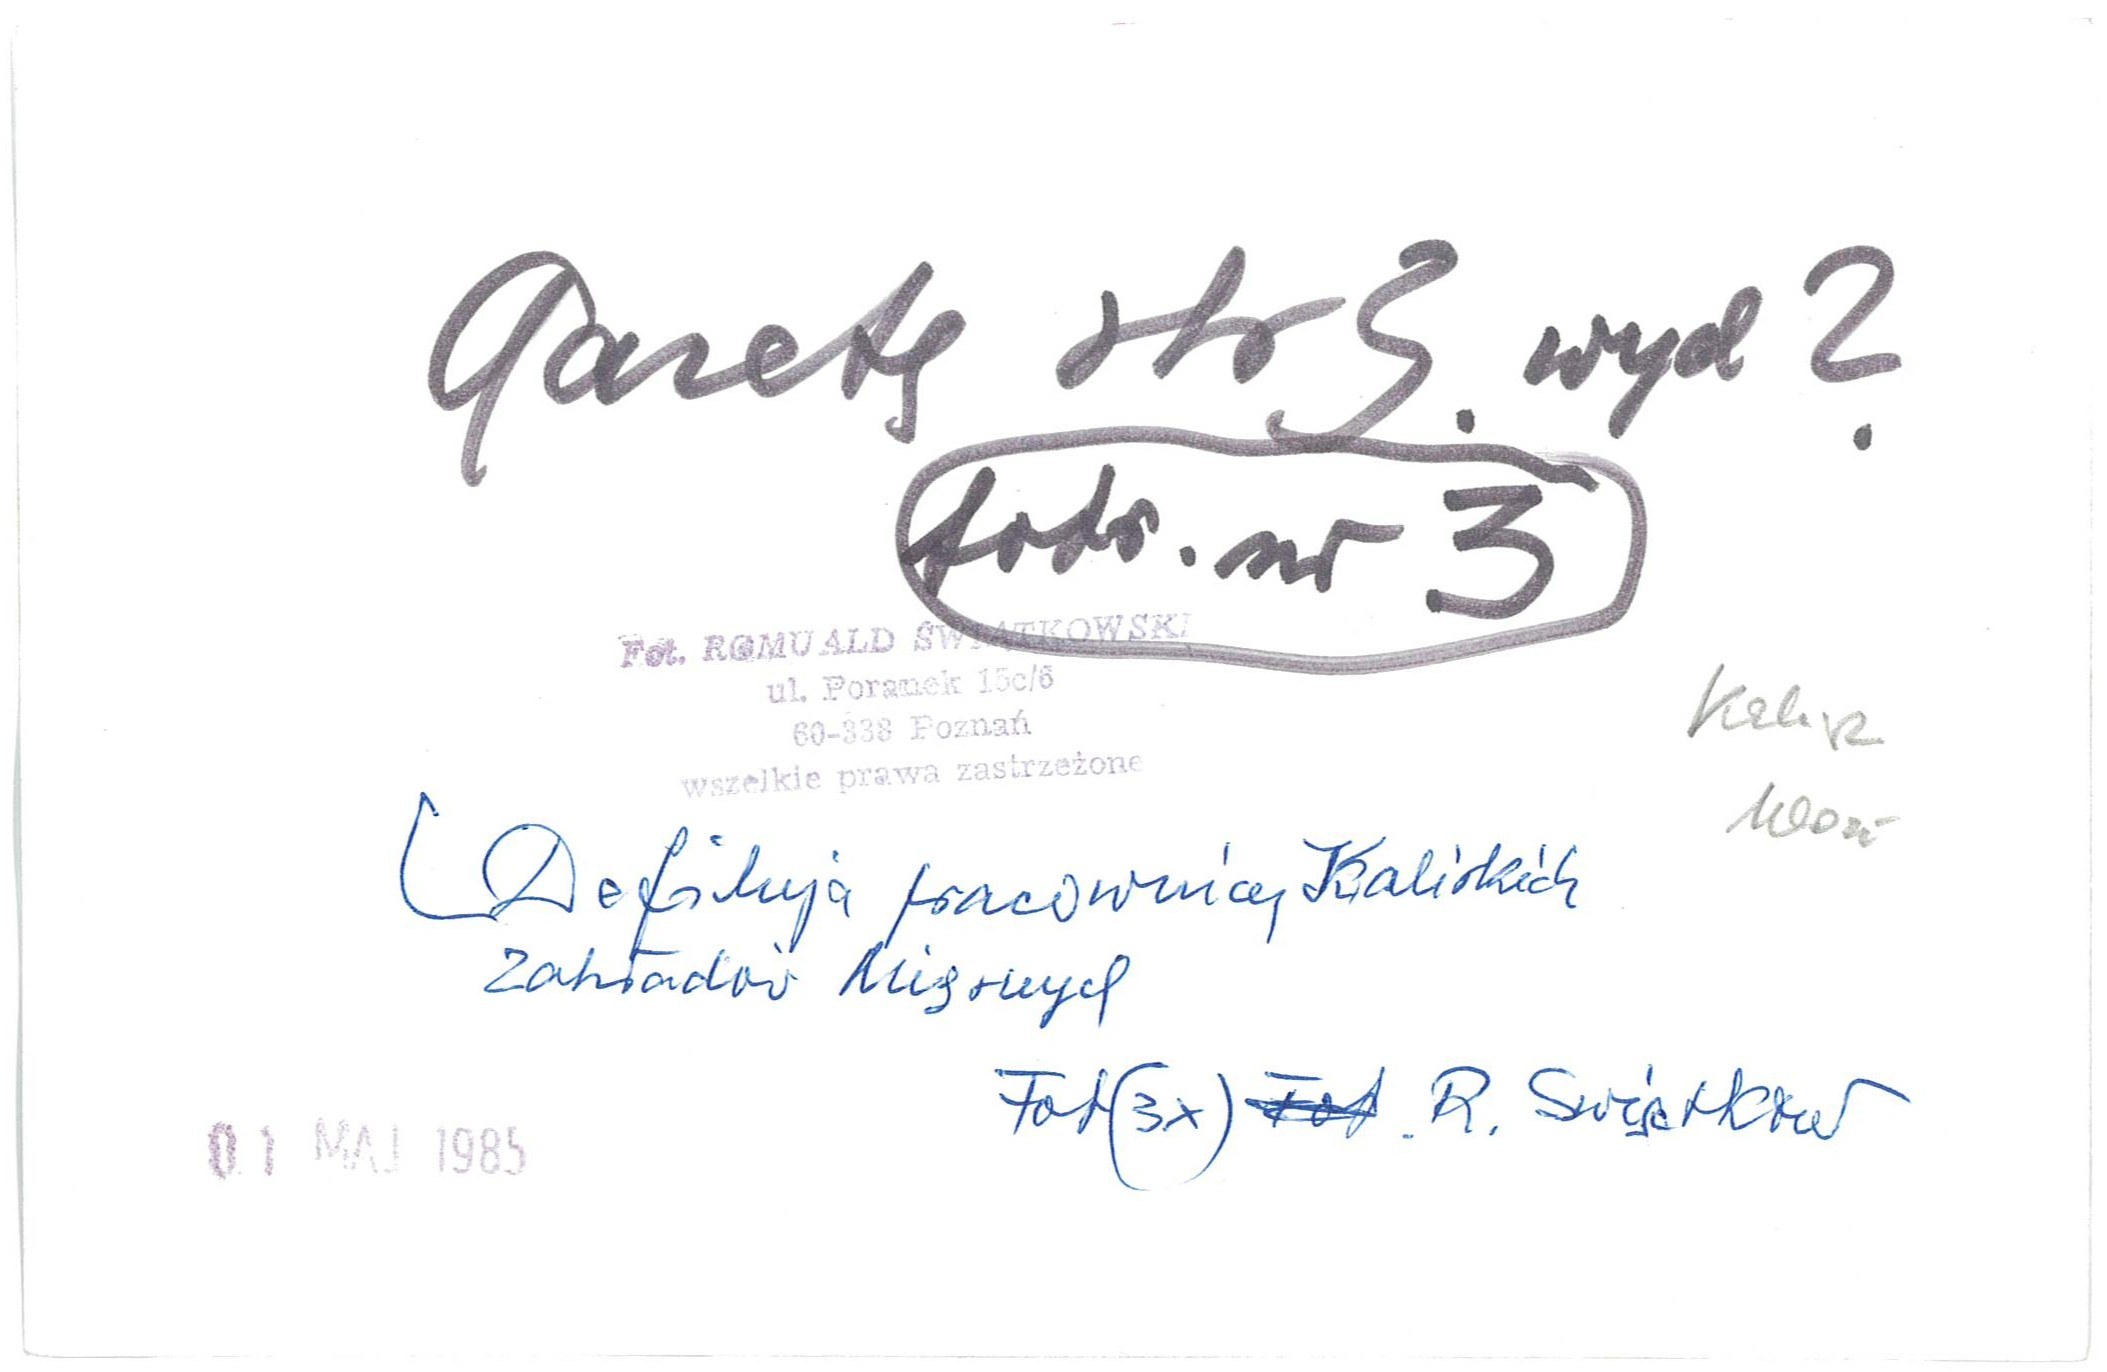 Gazetę str 3. wyd 2.
foto. nr 3
Fot. ROMUALD ŚWIĄTKOWSKI
ul. Poranek 15c/6
60-338 Poznań
wszelkie prawa zastrzeżone
Kalisz
Defilują pracownicy Kaliskich
Zakładów Mięsnych
Fot (3x) Fot. R. Świątkow
01 MAJ 1985